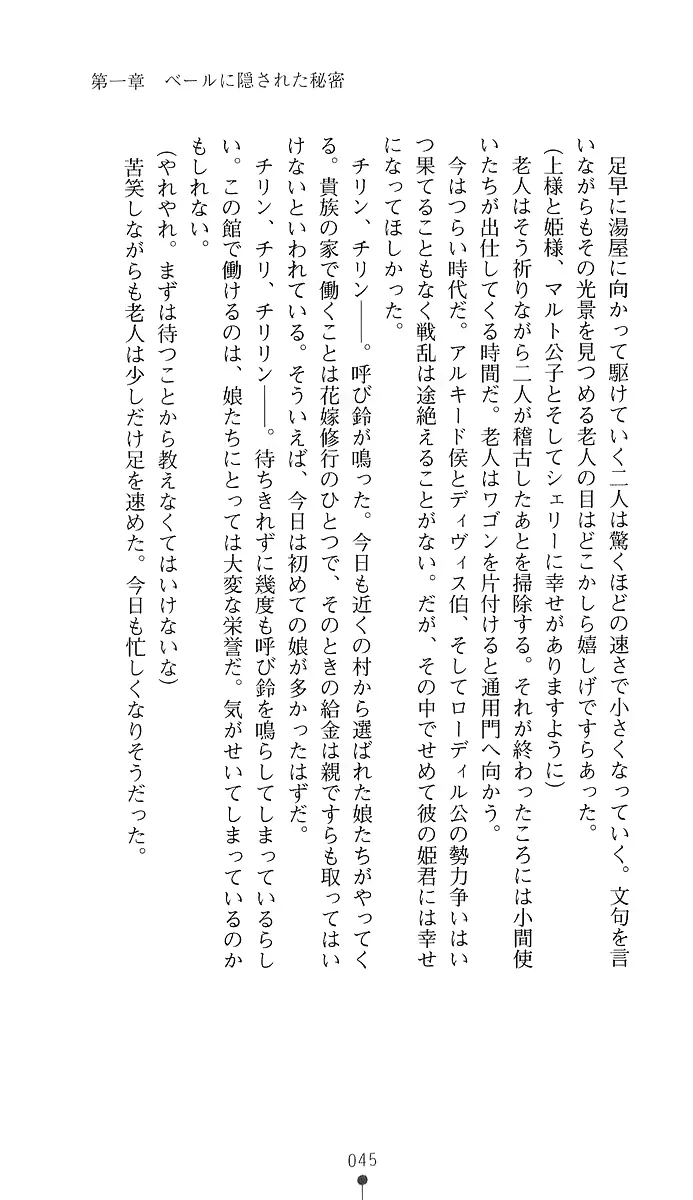 第一章　ベールに隠された秘密
　足早に湯屋に向かって駆けていく二人は驚くほどの速さで小さくなっていく。文句を言
いながらもその光景を見つめる老人の目はどこかしら嬉しげですらあった。
（上様と姫様、マルト公子とそしてシェリーに幸せがありますように）
　老人はそう祈りながら二人が稽古したあとを掃除する。それが終わったころには小間使
いたちが出仕してくる時間だ。老人はワゴンを片付けると通用門へ向かう。
　今はつらい時代だ。アルキード侯とディヴィス伯、そしてローディル公の勢力争いはい
つ果てることもなく戦乱は途絶えることがない。だが、その中でせめて彼の姫君には幸せ
になってほしかった。
　チリン、チリン――。呼び鈴が鳴った。今日も近くの村から選ばれた娘たちがやってく
る。貴族の家で働くことは花嫁修行のひとつで、そのときの給金は親ですらも取ってはい
けないといわれている。そういえば、今日は初めての娘が多かったはずだ。
　チリン、チリ、チリリン――。待ちきれずに幾度も呼び鈴を鳴らしてしまっているらし
い。この館で働けるのは、娘たちにとっては大変な栄誉だ。気がせいてしまっているのか
もしれない。
（やれやれ。まずは待つことから教えなくてはいけないな）
　苦笑しながらも老人は少しだけ足を速めた。今日も忙しくなりそうだった。
045